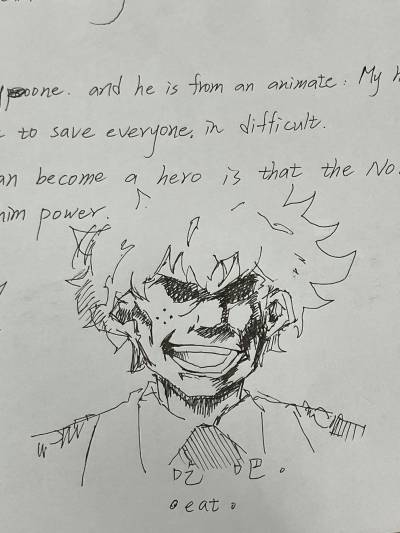 and he is from an animate. My
to save everyone. in difficult.
become a hero is that the No.
him power.
吃 吧 。
eat 。